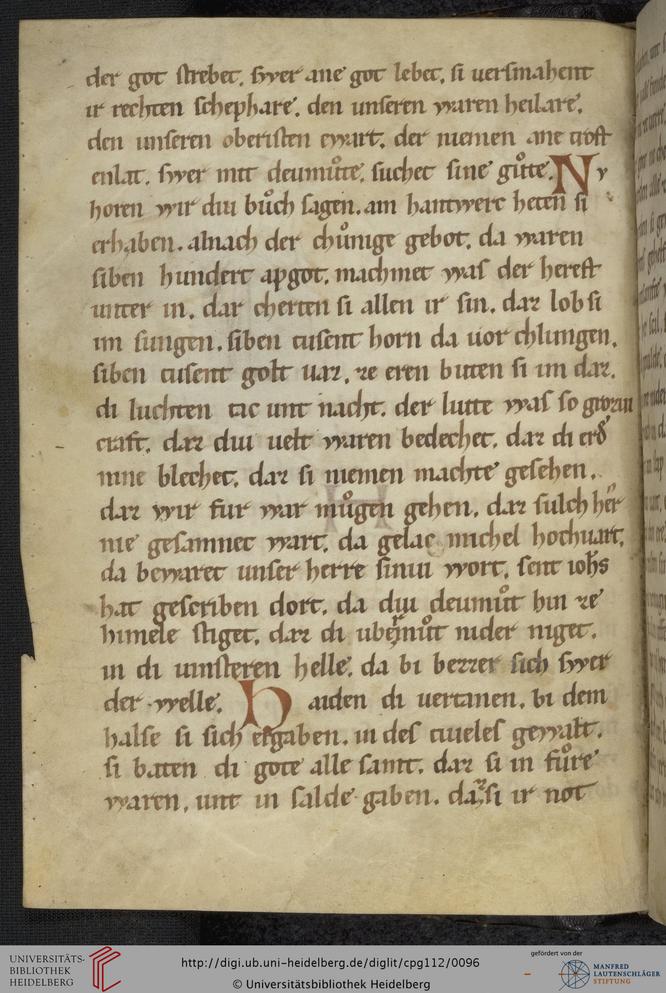 der got strebet. swer ane got lebet. si uersmahent
ir rechten schephare. den unseren waren heilare.
den unseren oberisten ewart. der niemen ane trost
enlat. swer mit deumůte. suchet sine gůte. Nv
horen wir diu bůch sagen. ain hantwerc heten si
erhaben. alnach der chůnige gebot. da waren
siben hundert apgot. machmet was der herest
unter in. dar cherten si allen ir sin. daz lob si
im sungen. siben tusent horn da uor chlungen.
siben tusent golt uaz. ze eren buten si im daz.
di luchten tac unt nacht. der lutte was so grozziu
craft. daz diu uelt waren bedechet. daz di erde
nine blechet. daz si niemen machte gesehen.
daz wir fur war můgen gehen. daz sulch her
nie gesamnet wart. da gelac michel hochuart.
da bewaret unser herre siniu wort. sent iohs
hat gescriben dort. da diu deumůt hin ze
himele stiget. daz di ubermůt nider niget.
in di uinsteren helle. da bi bezzer sich swer
der welle. Haiden di uertanen. bi dem
halse si sich ergaben. in des tiueles gewalt.
si baten di gote alle samt. daz si in fůre
waren. unt in salde gaben. daz si ir not
UNIVERSITÄTS-
BIBLIOTHEK
HEIDELBERG
http://digi.ub.uni-heidelberg.de/diglit/cpg112/0096
© Universitätsbibliothek Heidelberg
gefördert von der
MANFRED
LAUTENSCHLÄGER
STIFTUNG